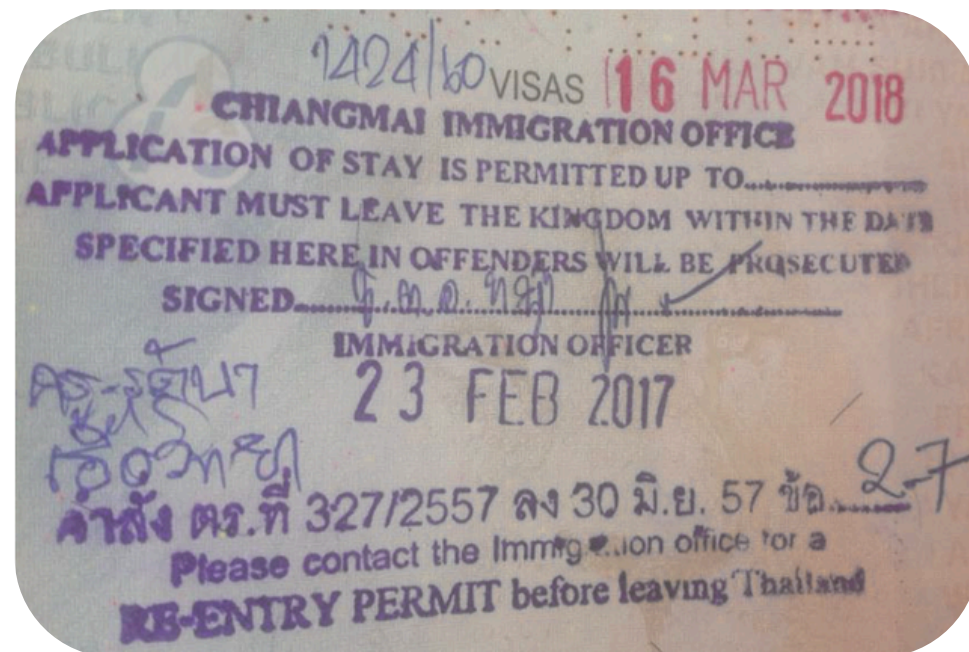 1424/60 VISAS 16 MAR 2018
CHIANGMAI IMMIGRATION OFFICE
APPLICATION OF STAY IS PERMITTED UP TO..........
APPLICANT MUST LEAVE THE KINGDOM WITHIN THE DATE
SPECIFIED HERE IN OFFENDERS WILL BE PROSECUTED
SIGNED..........
IMMIGRATION OFFICER
23 FEB 2017
คำสั่ง ตร.ที่ 327/2557 ลง 30 มิ.ย. 57 ข้อ.....2-7
Please contact the Immigration office for a
RE-ENTRY PERMIT before leaving Thailand